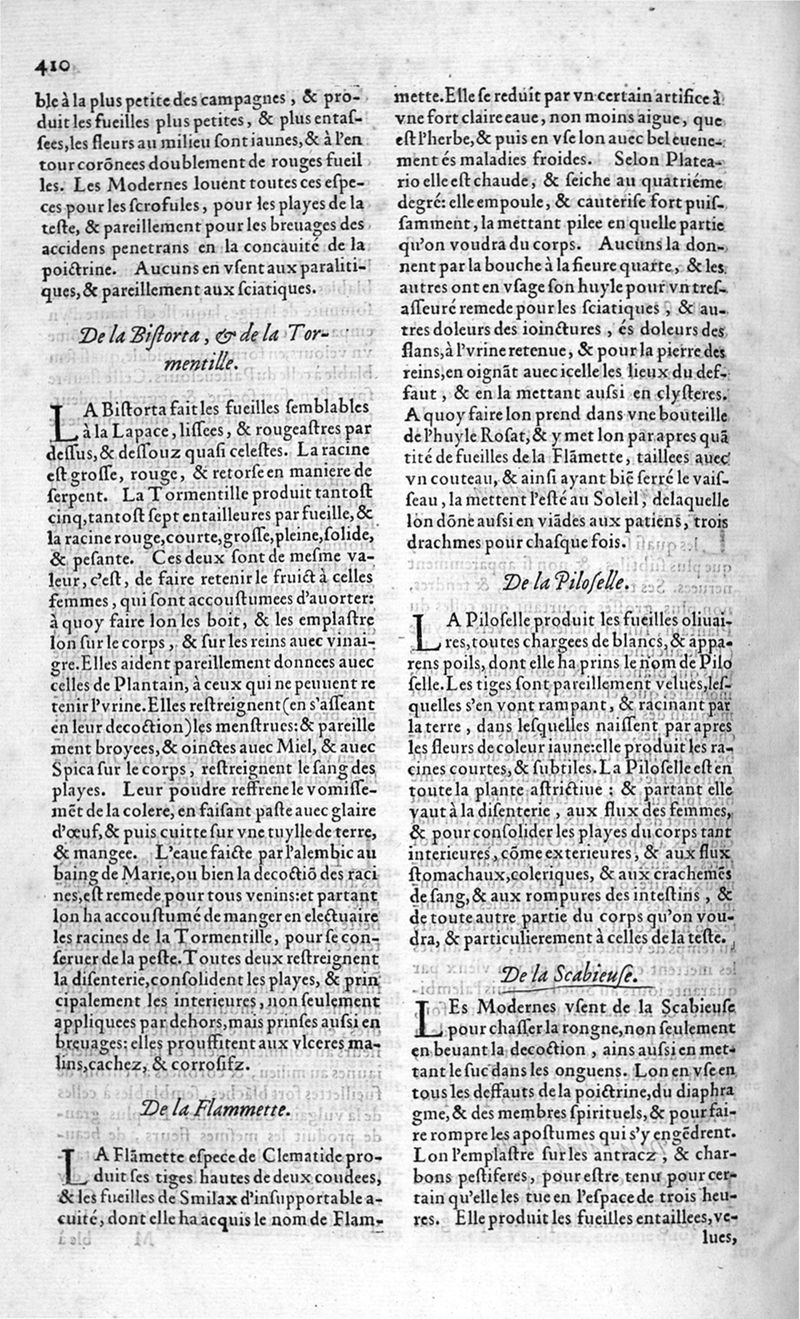 410
ble à la plus petite des campagnes, & pro-
duit les fueilles plus petites, & plus entaſ-
ſees, les fleurs au milieu ſont iaunes, & à l'en
tour corõnees doublement de rouges fueil
les. Les Modernes louent toutes ces eſpe-
ces pour les ſcrofules, pour les playes de la
teſte, & pareillement pour les breuages des
accidens penetrans en la concauité de la
poictrine. Aucuns en vſent aux paraliti-
ques, & pareillement aux ſciatiques.
De la Biſtorta, & de la Tor-
mentille.
LA Biſtorta fait les fueilles ſemblables
à la Lapace, liſſees, & rougeaſtres par
deſſus, & deſſouz quaſi celeſtes. La racine
eſt groſſe, rouge, & retorſe en maniere de
ſerpent. La Tormentille produit tantoſt
cinq, tantoſt ſept entailleures par fueille, &
la racine rouge, courte, groſſe, pleine, ſolide,
& peſante. Ces deux ſont de meſme va-
leur, c'eſt, de faire retenir le fruict à celles
femmes, qui ſont accouſtumees d'auorter:
à quoy faire lon les boit, & les emplaſtre
lon ſur le corps, & ſur les reins auec vinai-
gre. Elles aident pareillement donnees auec
celles de Plantain, à ceux qui ne peuuent re
tenir l'vrine. Elles reſtreignent (en s'aſſeant
en leur decoction) les menſtrues: & pareille
ment broyees, & oinctes auec Miel, & auec
Spica ſur le corps, reſtreignent le ſang des
playes. Leur poudre reffrene le vomiſſe-
mẽt de la colere, en faiſant paſte auec glaire
d'œuf, & puis cuitte ſur vne tuylle de terre,
& mangee. L'eaue faicte par l'alembic au
baing de Marie, ou bien la decoctiõ des raci
nes, eſt remede pour tous venins: et partant
lon ha accouſtumé de manger en electuaire
les racines de la Tormentille, pour ſe con-
ſeruer de la peſte. Toutes deux reſtreignent
la diſenterie, conſolident les playes, & prin
cipalement les interieures, non ſeulement
appliquees par dehors, mais prinſes auſſi en
breuages: elles prouffitent aux vlceres ma-
lins, cachez, & corroſifz.
De la Flammette.
LA Flãmette eſpece de Clematide pro-
duit ſes tiges hautes de deux coudees,
& les fueilles de Smilax d'inſupportable a-
cuité, dont elle ha acquis le nom de Flam-
mette. Elle ſe reduit par vn certain artifice à
vne fort claire eaue, non moins aigue, que
eſt l'herbe, & puis en vſe lon auec bel euene-
ment és maladies froides. Selon Platea-
rio elle eſt chaude, & ſeiche au quatriéme
degré: elle empoule, & cauteriſe fort puiſ-
ſamment, la mettant pilee en quelle partie
qu'on voudra du corps. Aucuns la don-
nent par la bouche à la fieure quarte, & les
autres ont en vſage ſon huyle pour vn treſ-
aſſeuré remede pour les ſciatiques, & au-
tres doleurs des ioinctures, és doleurs des
flans, à l'vrine retenue, & pour la pierre des
reins, en oignãt auec icelle les lieux du def-
faut, & en la mettant auſſi en clyſteres.
A quoy faire lon prend dans vne bouteille
de l'huyle Roſat, & y met lon par apres quã
tité de fueilles de la Flãmette, taillees auec
vn couteau, & ainſi ayant biẽ ſerré le vaiſ-
ſeau, la mettent l'eſté au Soleil, delaquelle
lon dõne auſſi en viãdes aux patiens, trois
drachmes pour chaſque fois.
De la Piloſelle.
LA Piloſelle produit les fueilles oliuai-
res, toutes chargees de blancs, & appa-
rens poils, dont elle ha prins le nom de Pilo
ſelle. Les tiges ſont pareillement velues, leſ-
quelles s'en vont rampant, & racinant par
la terre, dans leſquelles naiſſent par apres
les fleurs de coleur iaune: elle produit les ra-
cines courtes, & ſubtiles. La Piloſelle eſt en
toute la plante aſtrictiue: & partant elle
vaut à la diſenterie, aux flux des femmes,
& pour conſolider les playes du corps tant
interieures, cõme exterieures, & aux flux
ſtomachaux, coleriques, & aux crachemẽs
de ſang, & aux rompures des inteſtins, &
de toute autre partie du corps qu'on vou-
dra, & particulierement à celles de la teſte.
De la Scabieuſe.
LEs Modernes vſent de la Scabieuſe
pour chaſſer la rongne, non ſeulement
en beuant la decoction, ains auſſi en met-
tant le ſuc dans les onguens. Lon en vſe en
tous les deffauts de la poictrine, du diaphra
gme, & des membres ſpirituels, & pour fai-
re rompre les apoſtumes qui s'y engẽdrent.
Lon l'emplaſtre ſur les antracz, & char-
bons peſtiferes, pour eſtre tenu pour cer-
tain qu'elle les tue en l'eſpace de trois heu-
res. Elle produit les fueilles entaillees, ve-
lues,